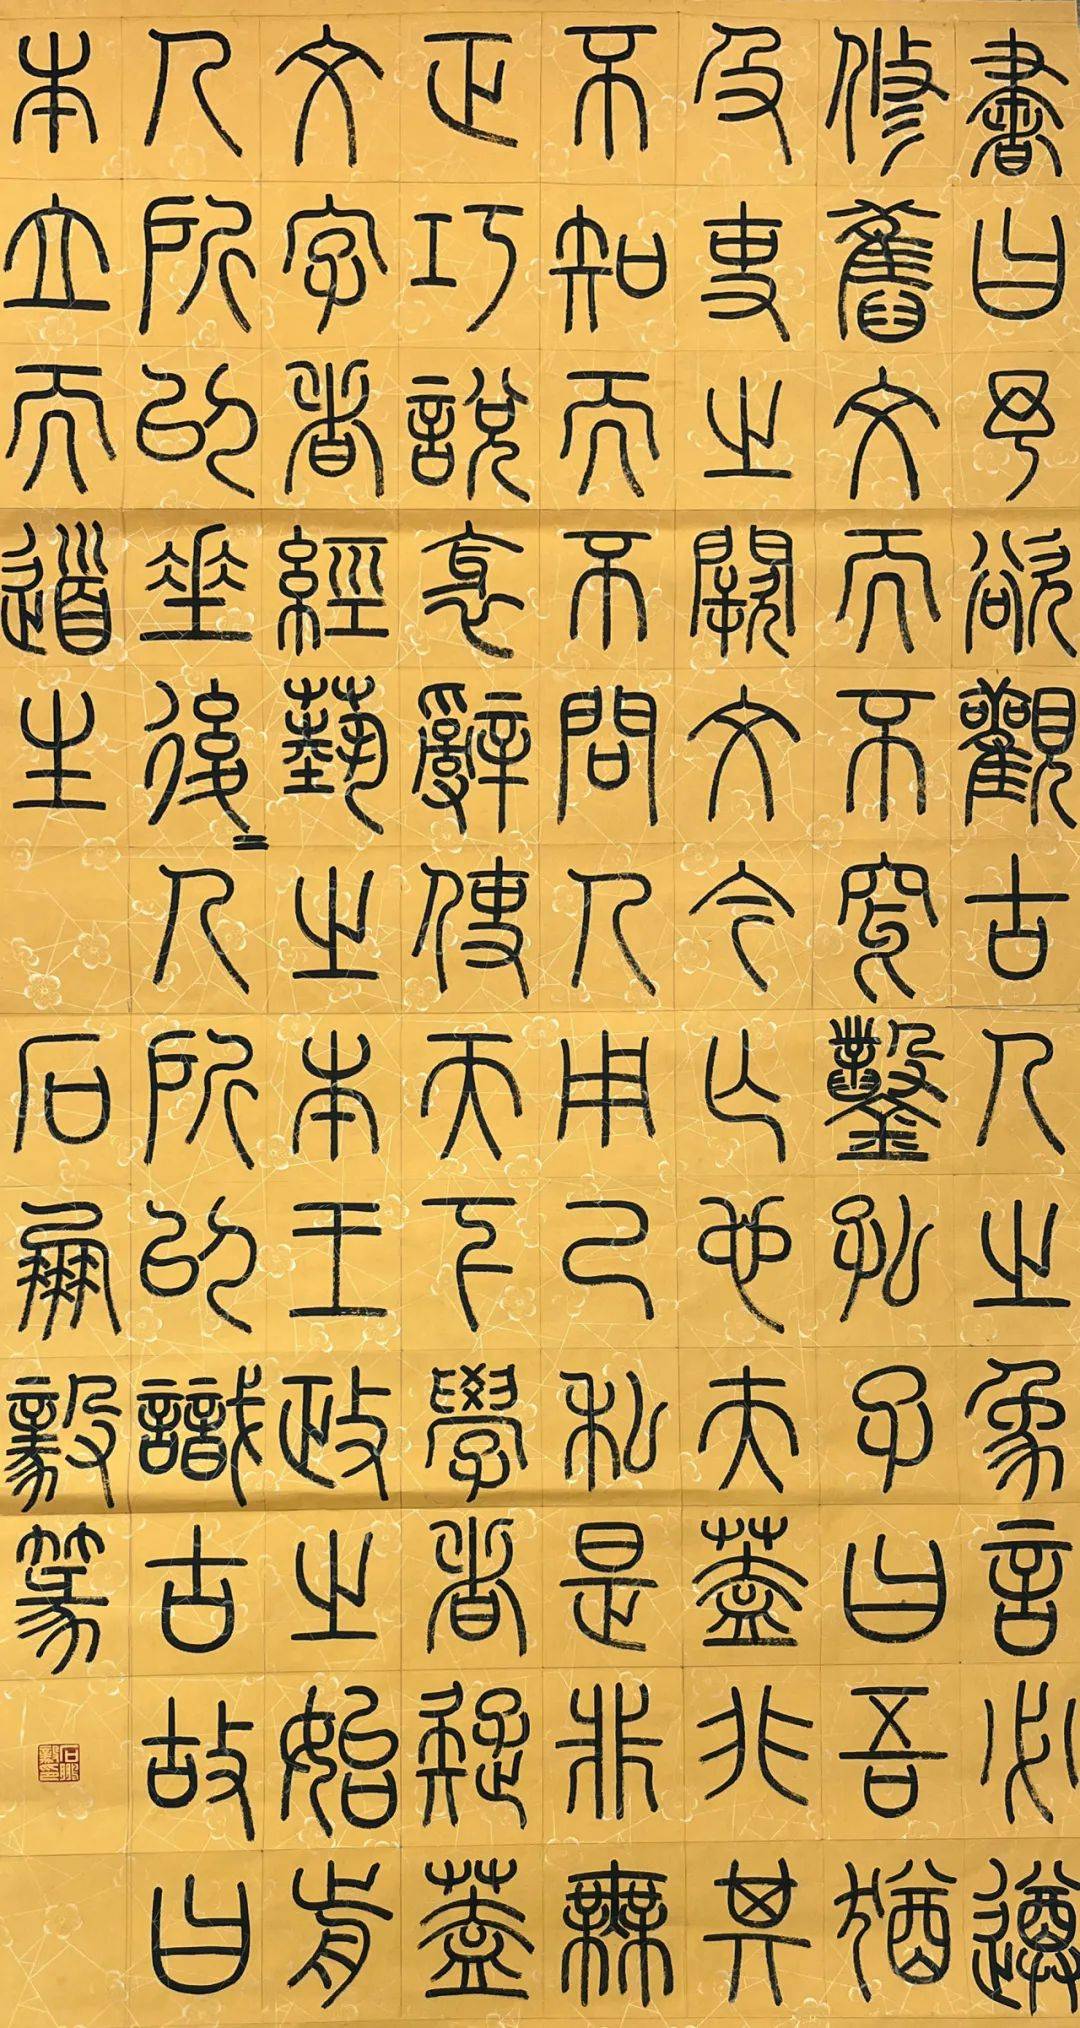 書曰予欲觀古人之象言必遵
修舊文而不穿鑿孔子曰吾猶
及史之闕文今亡也夫蓋非其
不知而不問人用己私是非無
正巧說衺辭使天下學者疑蓋
文字者經藝之本王政之始前
人所以垂後〻人所以識古故曰
本立而道生
石爾毅篆